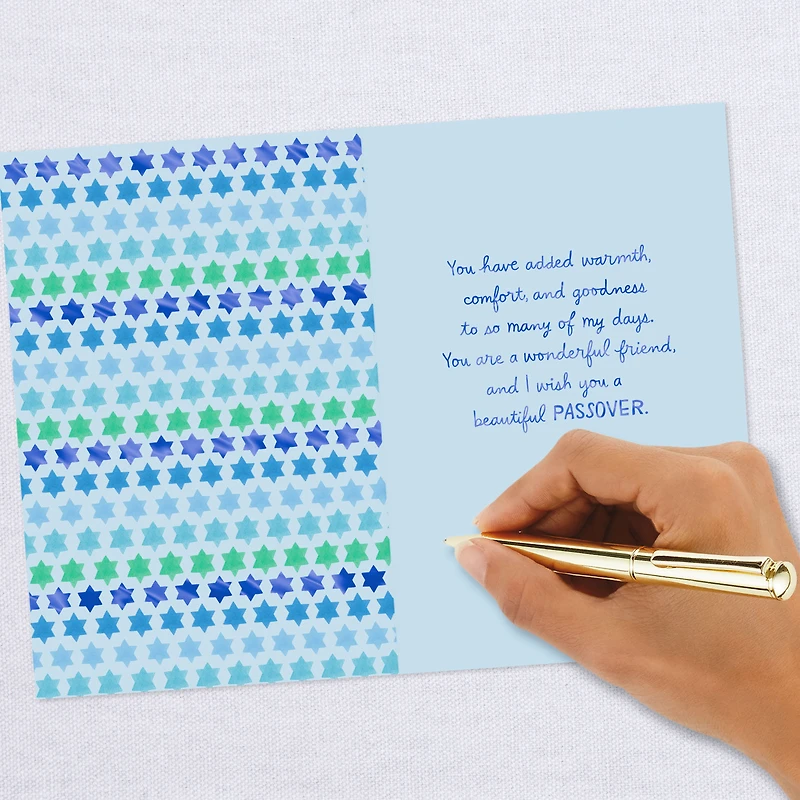 You have added warmth,
comfort, and goodness
to so many of my days.
You are a wonderful friend,
and I wish you a
beautiful PASSOVER.